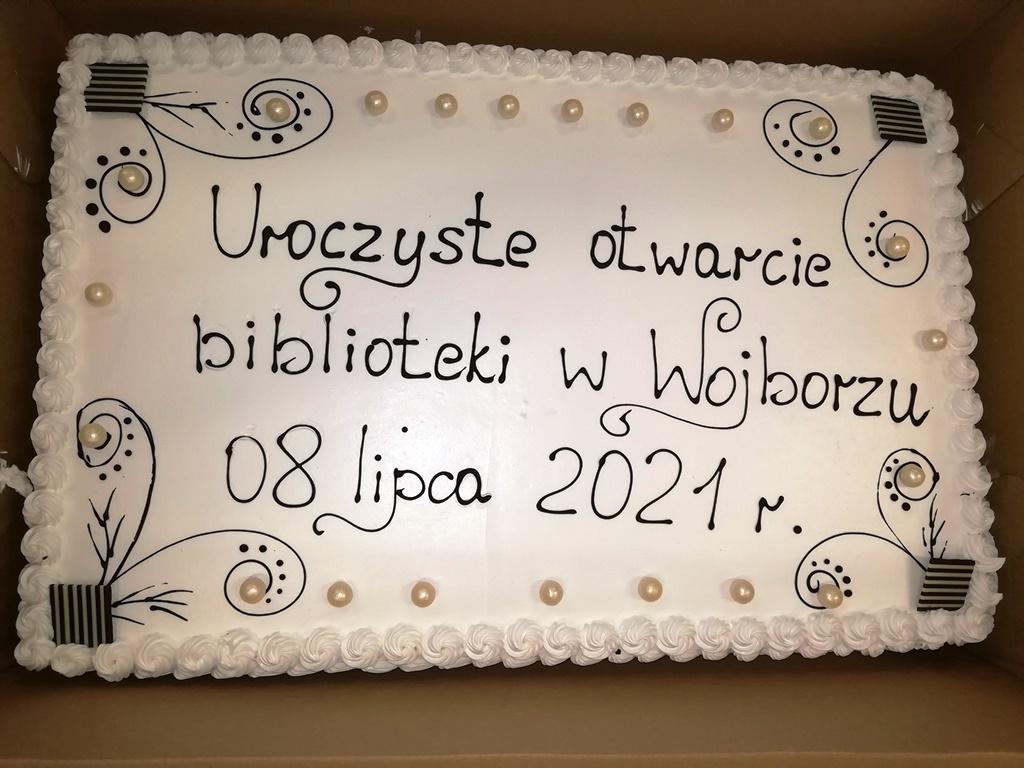 Uroczyste otwarcie
biblioteki w Wojborzu
08 lipca 2021 r.